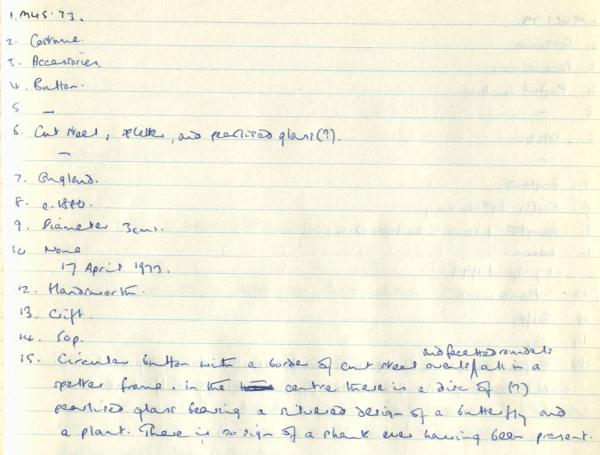 1. M45.73.
2. Costume.
3. Accessories.
4. Button.
5 —
6. Cut steel, spelter, and pearlised glass (?).
—
7. England.
8. c.1880.
9. Diameter 3cms.
10 None
17 April 1973.
12. Handsworth.
13. Gift.
14. 50p.
15. Circular button with a border of cut steel ovals and facetted roundels all in a
spelter frame. In the centre there is a disc of (?)
pearlised glass bearing a silvered design of a butterfly and
a plant. There is no sign of a shank ever having been present.